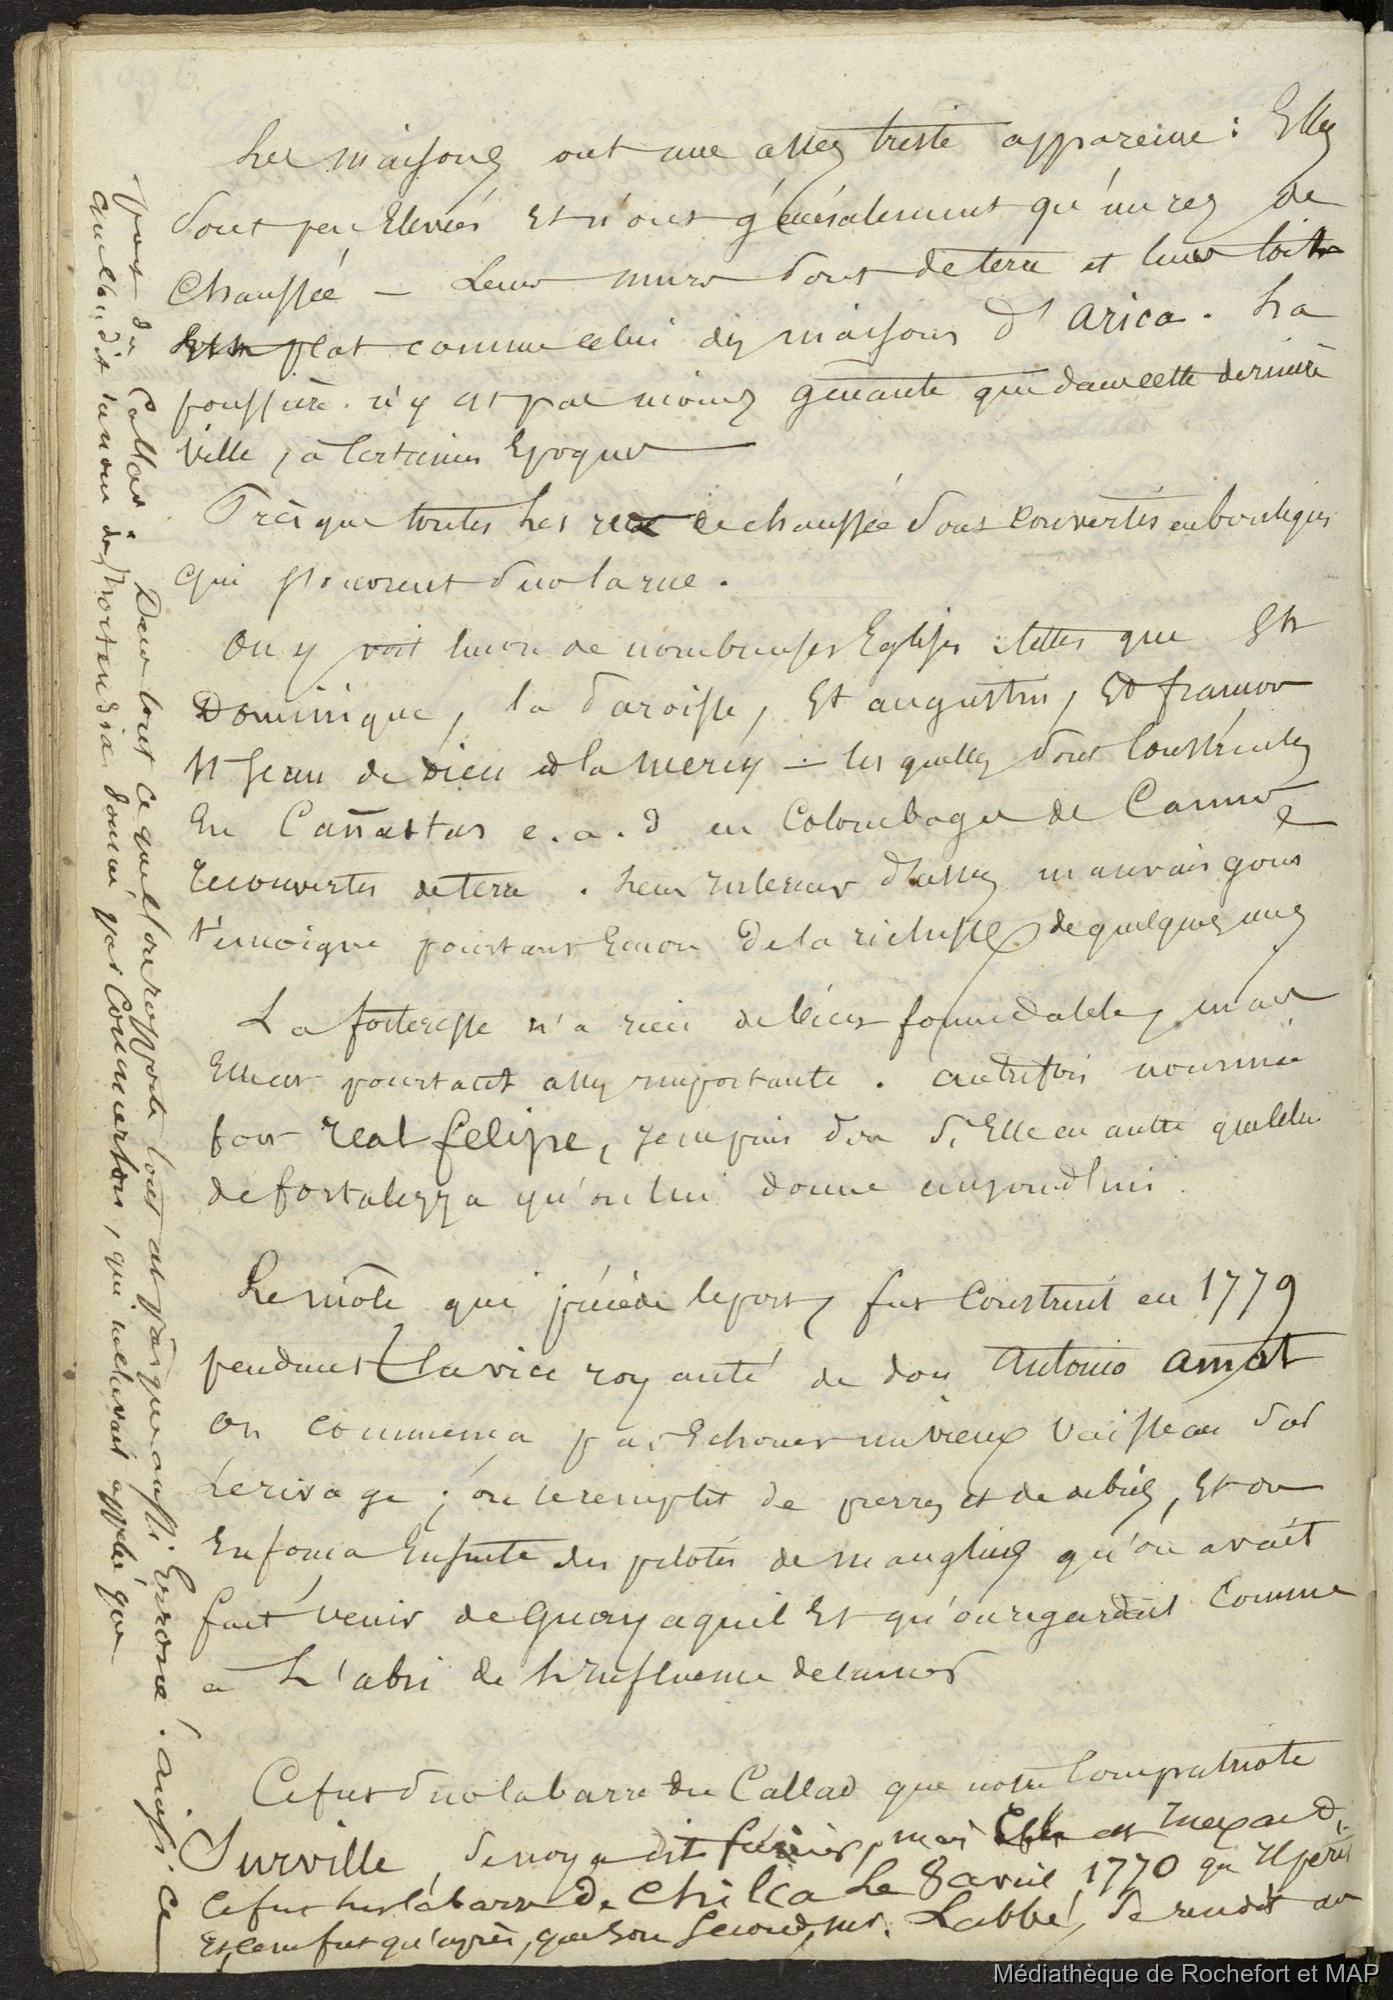 Les maisons ont une assez triste apparence : Elles
sont peu Elevées Et n'ont généralement qu'un rez de
Chaussée — Leurs murs sont de terre et leur toit
Est plat comme celui des maisons d'Arica . La
poussière n'y est pas moins gênante que dans cette dernière
ville , à certaines Epoques
Presque toutes Les rez de chaussée sont couvertes en boutiques
qui s'ouvrent sur la rue .
On y voit encore de nombreuses Eglises : telles que St
Dominique , la Paroisse , St augustin , St francois
St Jean de Dieu et la Mercy — les quelles sont construites
En Cañastas c . a . d en Colombages de Cannes
recouvertes de terre . Leur Interieur d'assez mauvais gout
témoigne pourtant Encore De la richesse de quelques unes
La forteresse n'a rien de bien formidable , mais
Elle est pourtant assez importante . autrefois nommée
fort real felipe , je ne puis dire si Elle en autre que celui
de fortalezza qu'on lui donne aujourd'hui
Le môle qui précède le port , fut Construit en 1779
pendant la vice royauté de don Antonio Amat
On commenca par Echouer un vieux vaisseau sur
Le rivage ; on le remplit de pierres et de débris , Et on
Enfonca Ensuite des pilotis de mangliers qu'on avait
fait venir de Guayaquil Et qu'on regardait Comme
à L'abri de L'Influence de la mer
Ce fut sur la barre du Callao que notre Compatriote
Surville se noya dit mais est Inexact ,
Ce fut sur la barre De Chilca Le 8 avril 1770 qu'Il périt
Et ce ne fut qu'après , que son Second , mr . Labbé , se rendit au
port du Callao . Dans tout ce que l'on rapporte tout est presque aussi Erroné . ainsi ce
que l'on dit du nom des hortensia donné par Commerson , qui m'elevait appeler que